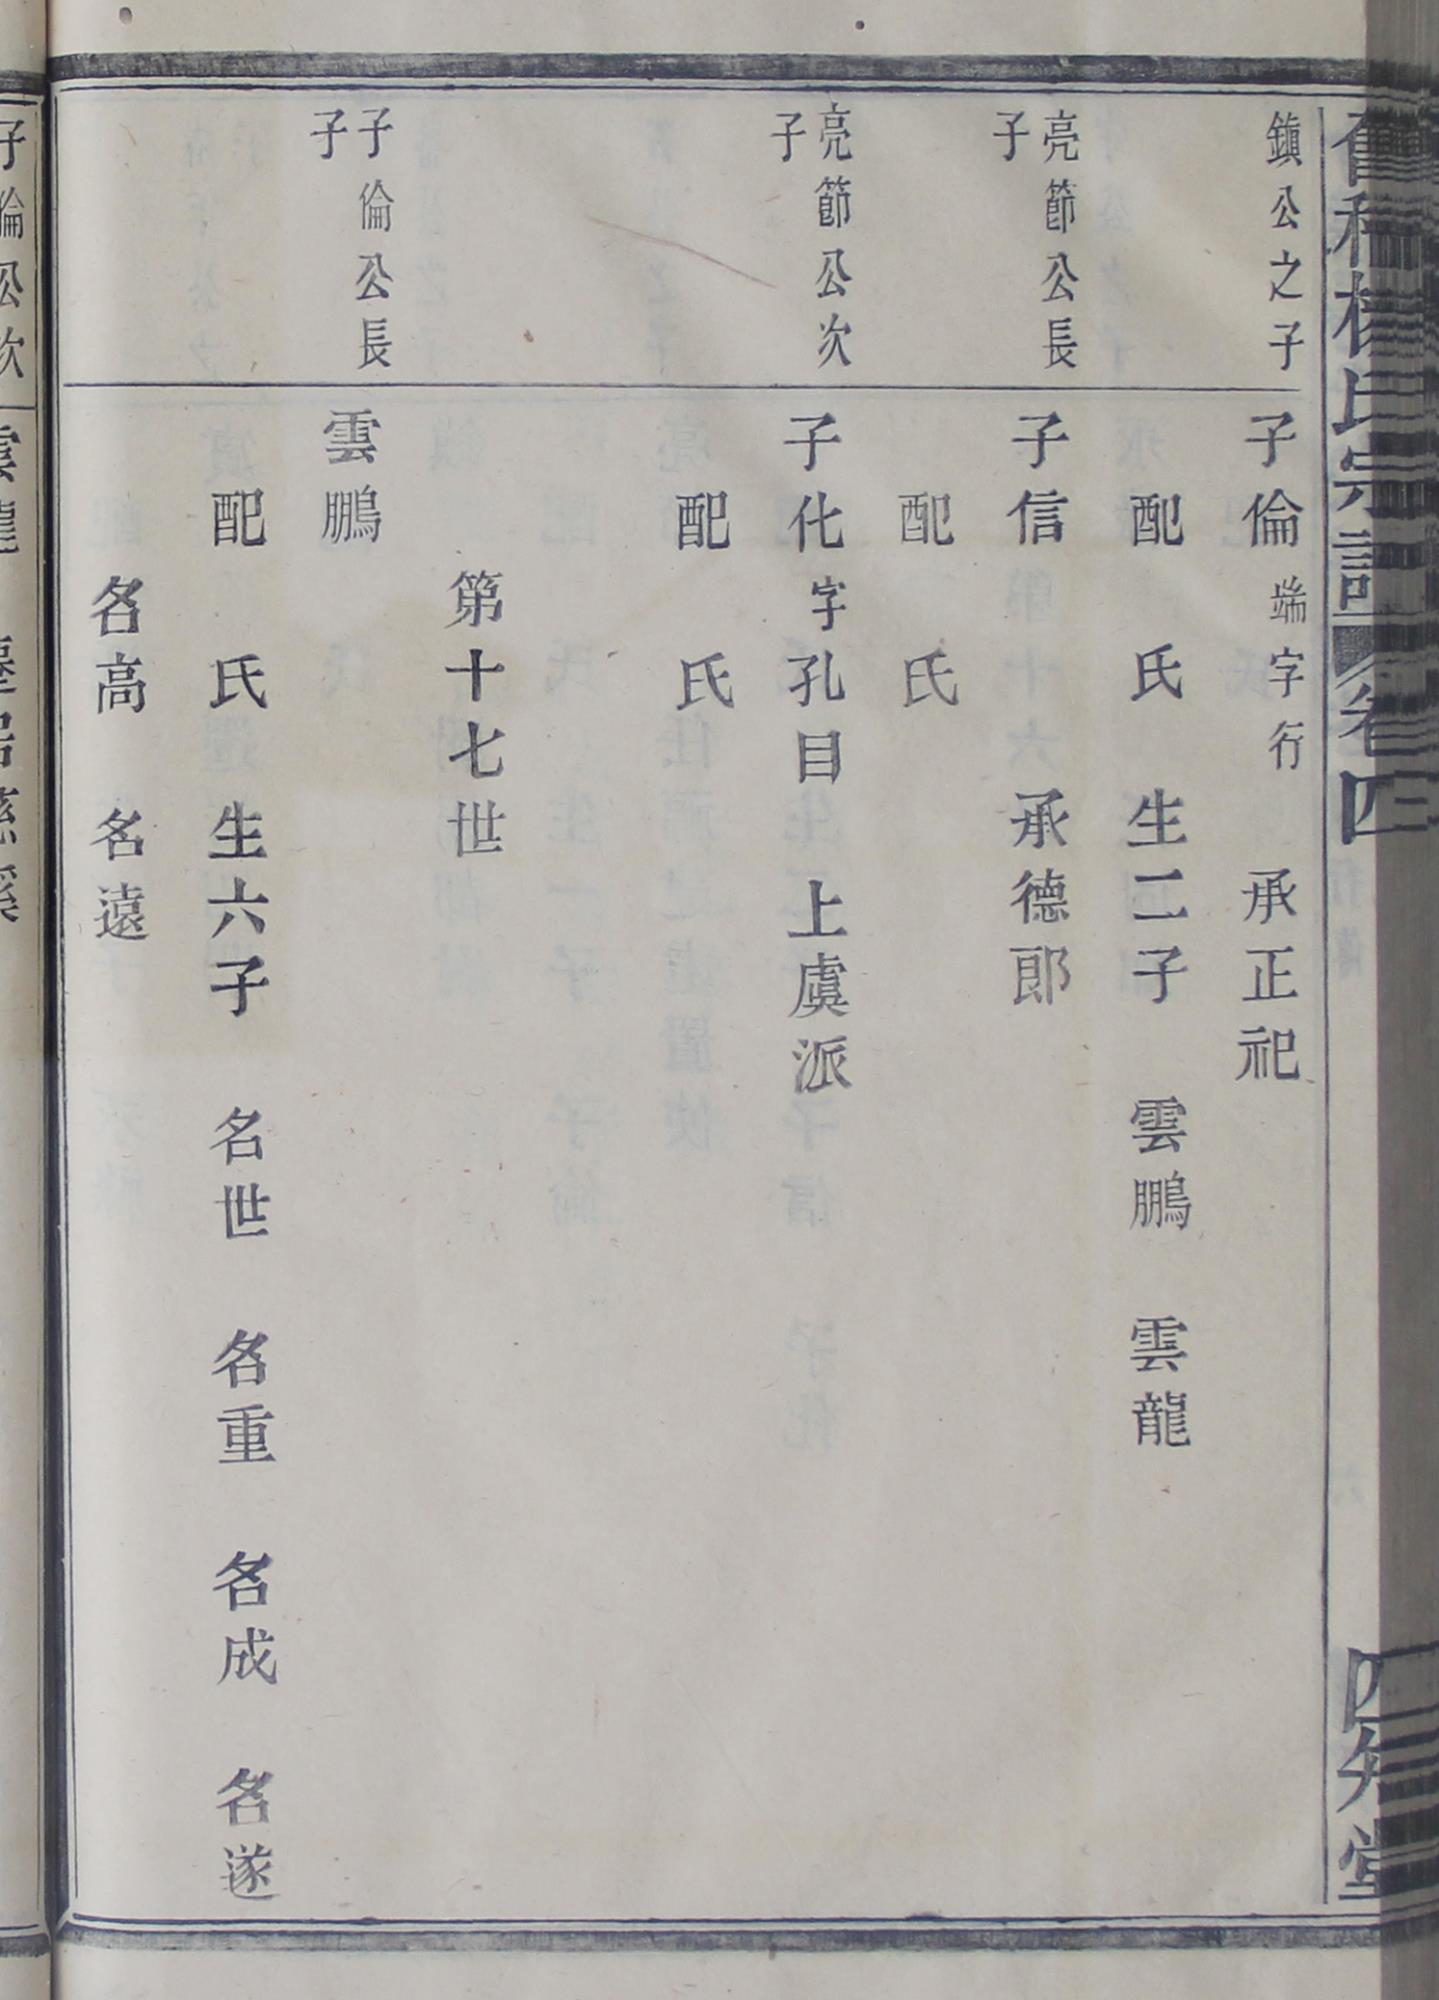 楊氏宗譜 卷四 四知堂
鎮公之子
子倫端字行 承正祀
配 氏 生二子 雲鵬 雲龍
亮節公長子
子信 承德郎
配 氏
亮節公次子
子化字孔目 上虞派
配 氏
第十七世
子倫公長子
雲鵬
配 氏 生六子 名世 名重 名成 名遂
名高 名遠
子倫公次
雲龍